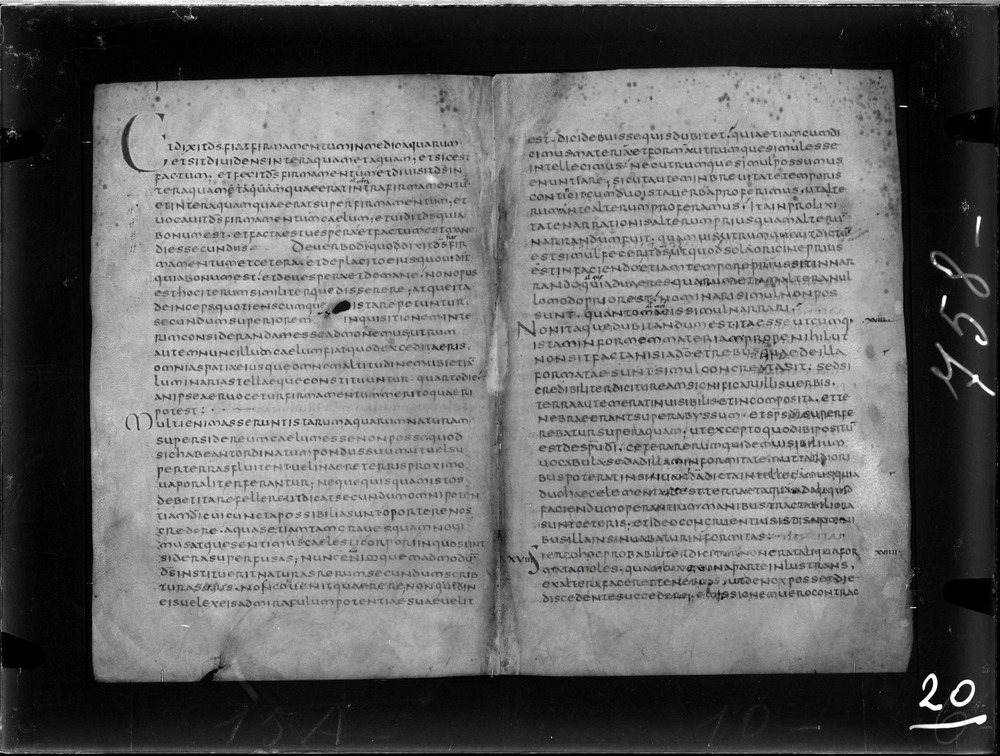 Et dixit ds fiat firmamentum in medio aquarum
et sit dividens inter aquam et aquam, et sic est
factum, et fecit ds firmamentum et divisit ds in
ter aquam quae erat infra firmamentū
et inter aquam quae erat super firmamentum, et
vocavit ds firmamentum caelum, et vidit ds quia
bonum est. et facta est vespera et factum est mane
dies secundus. De verbo di quo dixit ds fiat fir
mamentum et cetera. et de placito eius quo vidit
quia bonum est. et de vespera et de mane. non opus
est hoc iterum similiter quae disserere; atque ita
deinceps quotienscumque ista repetuntur,
secundum superiorem inquisitionem inte
rim consideranda messe admonemus, utrum
autem nunc illud caelum fiat quod excedit aeris
omnia spatia eiusque omnem altitudinem ubi etiā
luminaria stellaeque constituuntur quarto die
an ipse aer vocetur firmamentum merito quaeri
potest:
Multi enim asserunt istarum aquarum naturam
super sidereum caelum esse non posse quod
sic habeant ordinatum pondus suum ut vel su
per terras fluitent vel in aere terris proximo
vaporaliter ferantur, neque quisquam istos
debet ita refellere ut dicat secundum omnipoten
tiam di cui cuncta possibilia sunt oportere nos
credere. aquas etiam tam graves quam novi
mus atque sentimus caelesti corpori in quo sunt
sidera superfusas, nunc enim quemadmodū
ds instituerit naturas rerum secundum scrib
turas nos convenit quaerere, non quid in
eis vel ex eis ad miraculum potentiae suae velit
est. dici debuisse quis dubitet. quia etiam cum di
cimus materia et forma utrumque simul esse
intellegimus: nec utrumque simul possumus
enuntiare, sicut autem in brevitate temporis
contigit cum duo ista verba proferimus, ut alte
rum ante alterum proferamus, Ita in prolixi
tate narrationis alterum prius quam alterū
narrandum fuit. quamvis utrumque ut dictū
est simul fecerit ds, ut quod sola origine prius
est in faciendo etiam tempore prius sit in nar
rando, quia duae res quarum etiam altera nul
lo modo prior est. nominari simul non pos
sunt. quanto magis simul narrari.
Non itaque dubitandum est ita esse utcumq.
istam informem materiam prope nihil ut
non sit facta nisi a do et rebus quae de illa
formatae sunt simul concreata sit. sed si
credibiliter dicitur eam significari illis verbis.
terra autem erat invisibilis et incomposita. et te
nebrae erant super abyssum. et sps di superfe
rebatur super aquam, ut excepto quod ibi positū
est de spu di. cetera rerum quidem visibilium
vocabula sed ad illam informitatem ut tardiori
bus poterat insinuanda dicta intellegamus quia
duo haec elementa id est terra et aqua ad aliquid
faciendum operantium manibus tractabiliora
sunt ceteris. et ideo congruentius istis nomini
bus illa insinuabatur informitas.
xviii Si ergo hoc probabiliter dicitur non erat aliqua for
mata moles. quam lux ex una parte inlustrans,
ex altera faceret tenebras, unde nox posset die
discedente succedere; emissionem vero contrac
758-
20